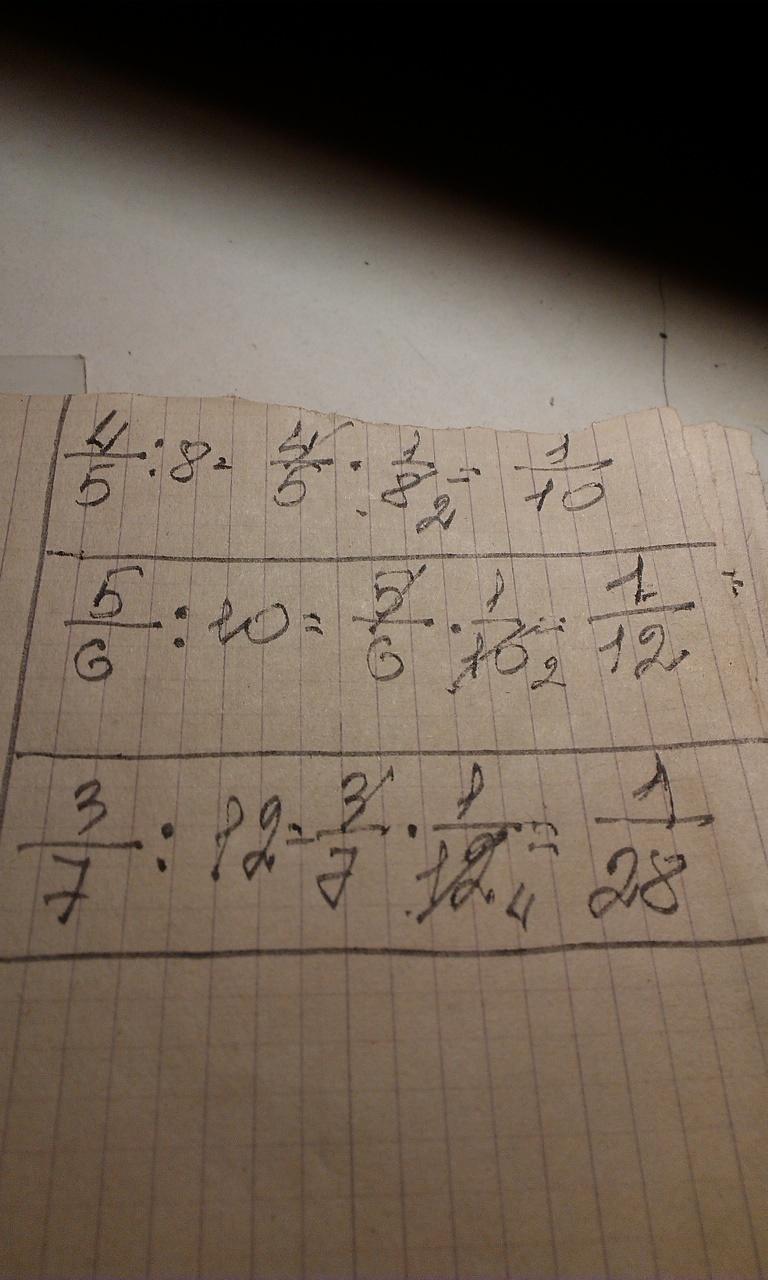 4/5 : 8 = 4/5 · 1/8 2 = 1/10
5/6 : 10 = 5/6 · 1/10 2 = 1/12
3/7 : 12 = 3/7 · 1/12 4 = 1/28